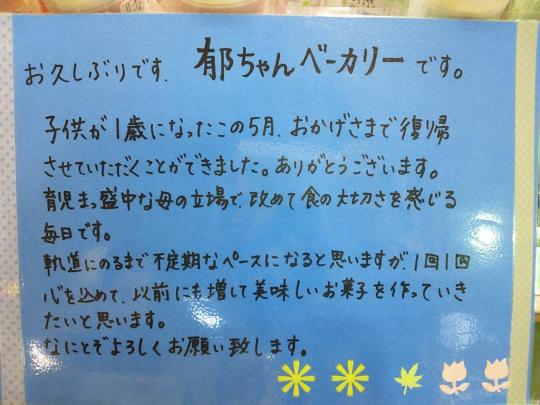 お久しぶりです、郁ちゃんベーカリーです。
子供が1歳になったこの5月、おかげさまで復帰
させていただくことができました。ありがとうございます。
育児まっ盛中な母の立場で、改めて食の大切さを感じる
毎日です。
軌道にのるまで不定期なペースになると思いますが、1回1回
心を込めて、以前にも増して美味しいお菓子を作っていき
たいと思います。
なにとぞよろしくお願い致します。